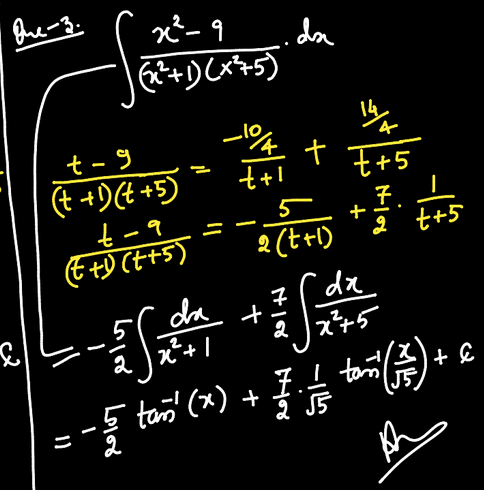 Que-3. ∫ (x² - 9)/((x²+1)(x²+5)) . dx
(t - 9)/((t+1)(t+5)) = (-10/4)/(t+1) + (14/4)/(t+5)
(t - 9)/((t+1)(t+5)) = - 5/(2(t+1)) + 7/2 · 1/(t+5)
- 5/2 ∫ dx/(x²+1) + 7/2 ∫ dx/(x²+5)
= - 5/2 tan⁻¹(x) + 7/2 · 1/√5 tan⁻¹(x/√5) + c